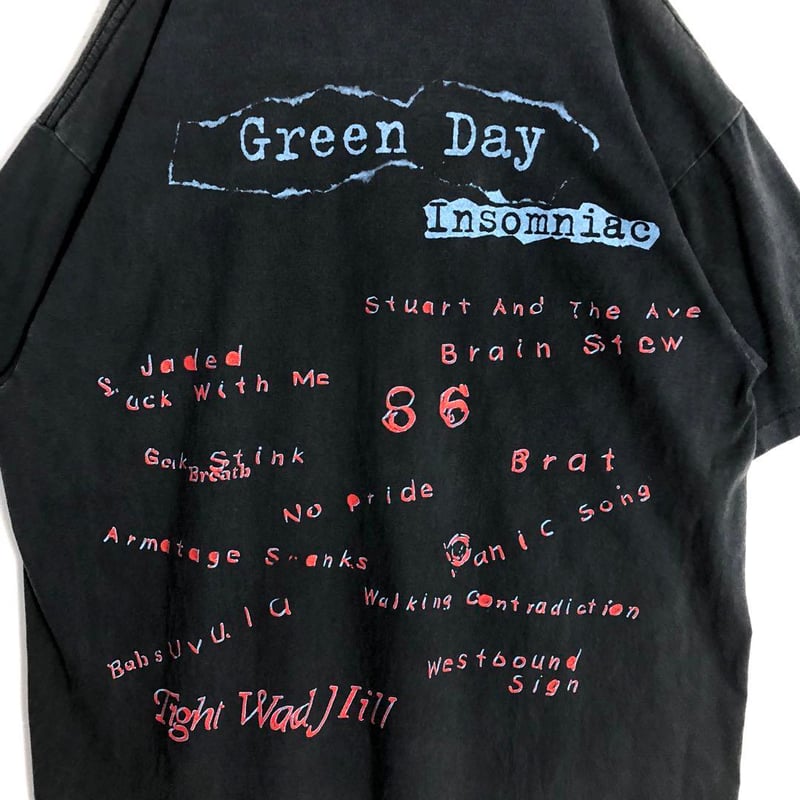 Green Day
Insomniac
Stuart And The Ave
Brain Stew
Jaded
Suck With Me
86
Geek Stink
Breath
Brat
No Pride
Panic Song
Armatage Shanks
Walking Contradiction
Babs Uvula
Westbound
Sign
Tight Wad Hill